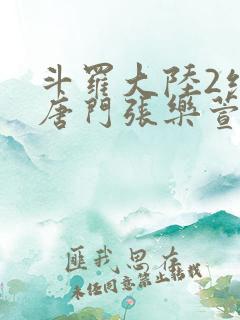 斗羅大陸2絕
唐門張樂萱
匪我思存
未經同意禁止轉載